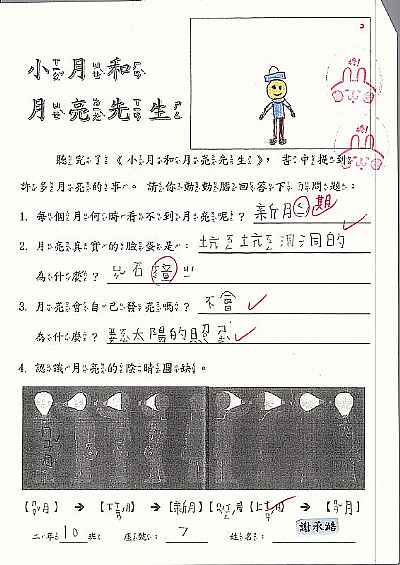 小月和
月亮先生
聽完了《小月和月亮先生》，書中提到
許多月亮的事。請你動動腦回答下列問題：
1. 每個月何時看不到月亮呢？新月 期
2. 月亮真實的臉蛋是：坑坑洞洞的
為什麼？ 石撞
3. 月亮會自己發亮嗎？不會
為什麼？太陽的照
4. 認識月亮的陰晴圓缺。
【月】→【下月】→【新月】【月】【上月】→【月】
二年10班 座號：7 姓名：謝承皓